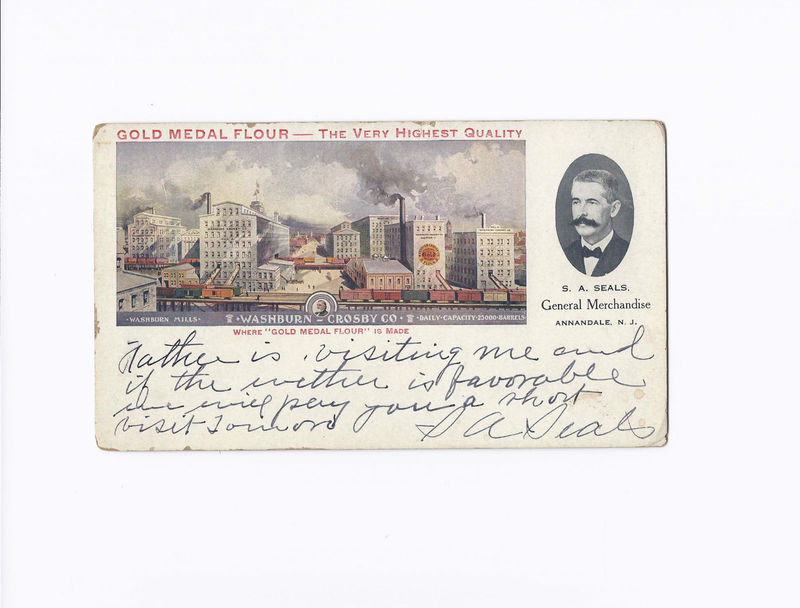 GOLD MEDAL FLOUR — THE VERY HIGHEST QUALITY
·WASHBURN MILLS·
·WASHBURN – CROSBY CO·
·DAILY·CAPACITY·25000·BARRELS·
WHERE "GOLD MEDAL FLOUR" IS MADE
S. A. SEALS,
General Merchandise
ANNANDALE, N. J.
Father is visiting me and
if the wether is favorable
we will pay you a short
visit Tomoro
S A Seals